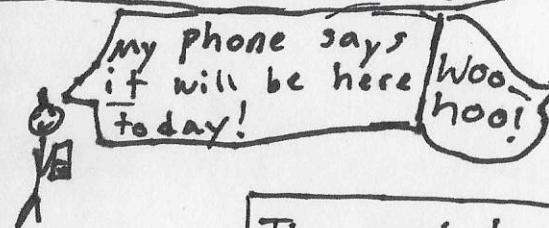 My phone says
it will be here
today!
Woo
hoo!